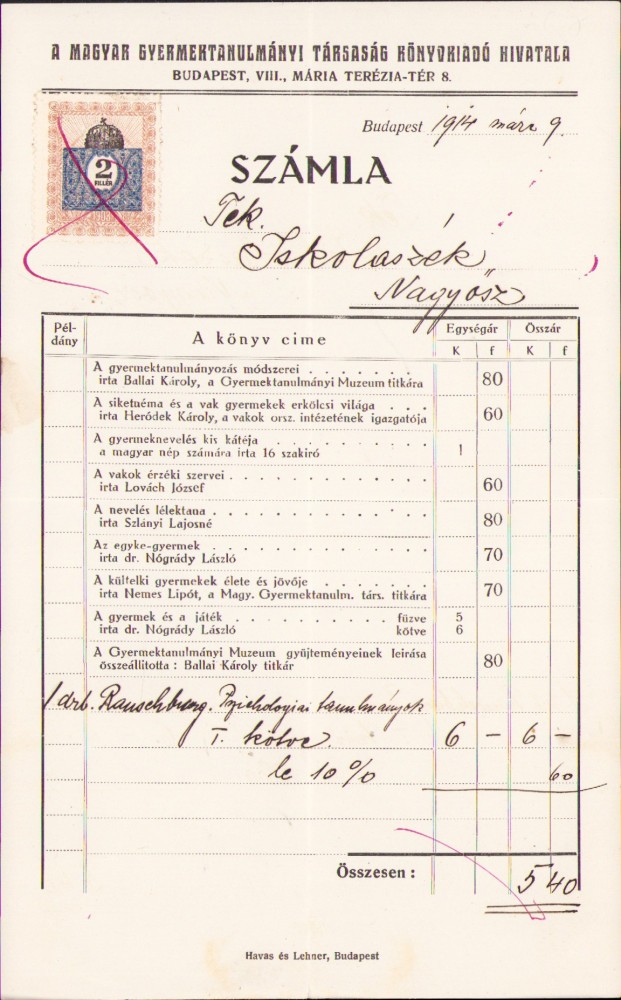 A MAGYAR GYERMEKTANULMÁNYI TÁRSASÁG KÖNYVKIADÓ HIVATALA
BUDAPEST, VIII., MÁRIA TERÉZIA-TÉR 8.
2
FILLÉR
Budapest 1914 márc 9.
SZÁMLA
Tek.
Iskolaszék
Nagyősz
Pél-
dány
A könyv cime
Egységár
Összár
K f K f
A gyermektanulmányozás módszerei . . . . . . .
irta Ballai Károly, a Gyermektanulmányi Muzeum titkára 80
A siketnéma és a vak gyermekek erkölcsi világa . . .
irta Heródek Károly, a vakok orsz. intézetének igazgatója 60
A gyermeknevelés kis kátéja . . . . . . . . .
a magyar nép számára irta 16 szakiró 1
A vakok érzéki szervei . . . . . . . . . . .
irta Lovách József 60
A nevelés lélektana . . . . . . . . . . . .
irta Szlányi Lajosné 80
Az egyke-gyermek . . . . . . . . . . . .
irta dr. Nógrády László 70
A kültelki gyermekek élete és jövője . . . . . .
irta Nemes Lipót, a Magy. Gyermektanulm. társ. titkára 70
A gyermek és a játék . . . . . . . . . füzve 5
irta dr. Nógrády László kötve 6
A Gyermektanulmányi Muzeum gyüjteményeinek leirása
összeállitotta : Ballai Károly titkár 80
1 drb. Ranschburg. Pszichologiai tanulmányok
I. kötve. 6 – 6 –
le 10 % 60
Összesen : 5 40
Havas és Lehner, Budapest